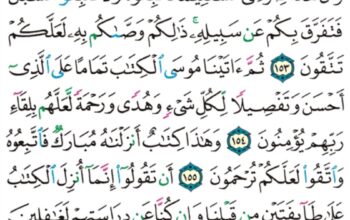 فَتَفَرَّقَ بِكُمْ عَن سَبِيلِهِۦ ذَٰلِكُمْ وَصَّىٰكُم بِهِۦ لَعَلَّكُمْ
تَتَّقُونَ ١٥٣ ثُمَّ ءَاتَيْنَا مُوسَى ٱلْكِتَٰبَ تَمَامًا عَلَى ٱلَّذِىٓ
أَحْسَنَ وَتَفْصِيلًا لِّكُلِّ شَىْءٍ وَهُدًى وَرَحْمَةً لَّعَلَّهُم بِلِقَآءِ
رَبِّهِمْ يُؤْمِنُونَ ١٥٤ وَهَٰذَا كِتَٰبٌ أَنزَلْنَٰهُ مُبَارَكٌ فَٱتَّبِعُوهُ
وَٱتَّقُوا۟ لَعَلَّكُمْ تُرْحَمُونَ ١٥٥ أَن تَقُولُوٓا۟ إِنَّمَآ أُنزِلَ ٱلْكِتَٰبُ
عَلَىٰ طَآئِفَتَيْنِ مِن قَبْلِنَا وَإِن كُنَّا عَن دِرَاسَتِهِمْ لَغَٰفِلِينَ